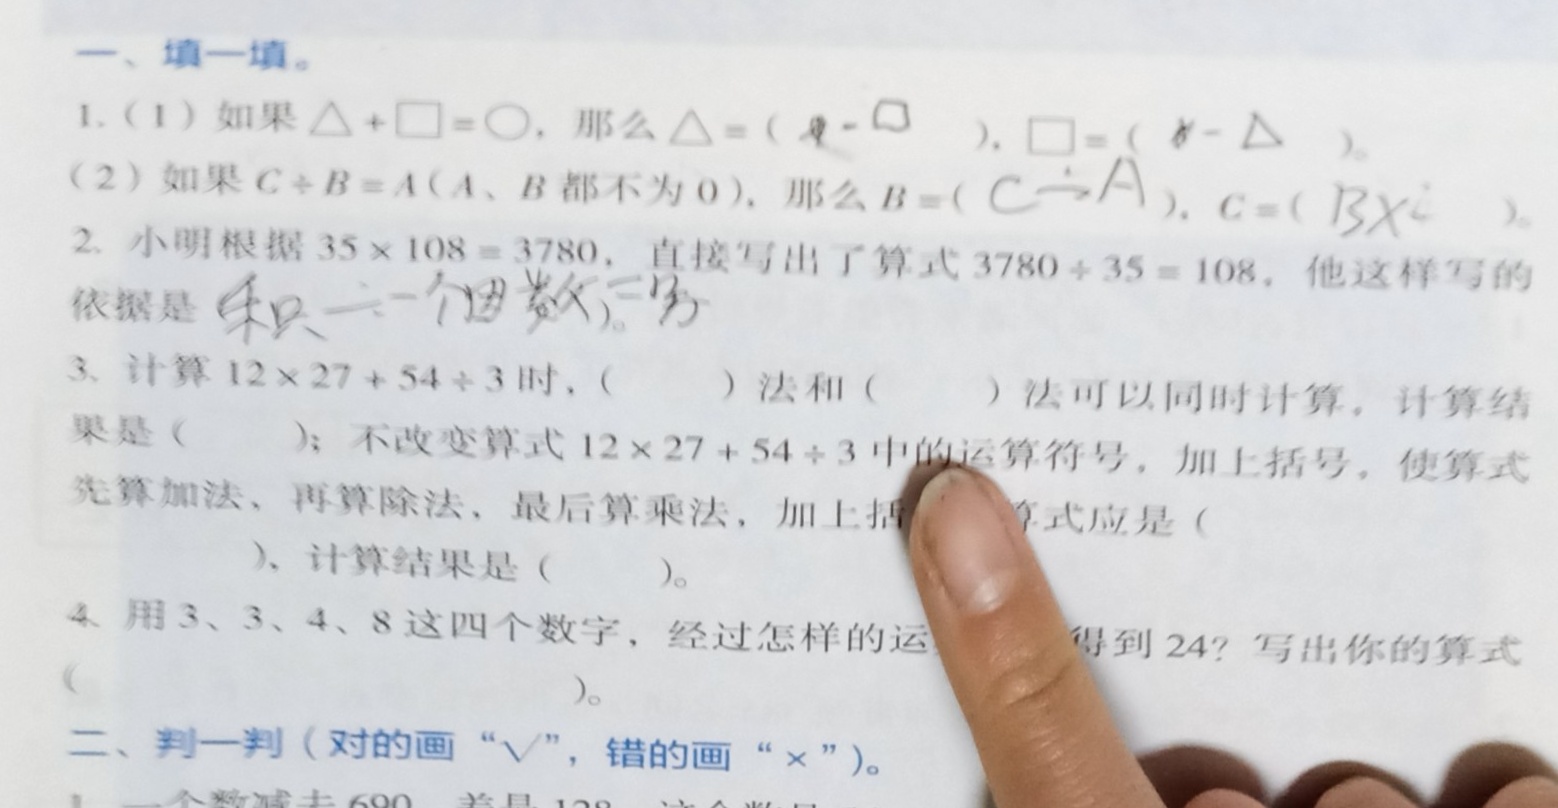 一、填一填。
1.（1）如果△+□=○，那么△=( -□ )，□=( -△ )。
（2）如果C÷B=A（A、B都不为0），那么B=( C÷A )，C=( B× )。
2. 小明根据35×108=3780，直接写出了算式3780÷35=108，他这样写的
依据是 积÷一个因数 )。
3. 计算12×27+54÷3时，( )法和( )法可以同时计算，计算结
果是( )；不改变算式12×27+54÷3中的运算符号，加上括号，使算式
先算加法、再算除法、最后算乘法，加上括 算式应是(
)、计算结果是( )。
4. 用3、3、4、8这四个数字，经过怎样的运 得到24？写出你的算式
( )。
二、判一判（对的画“√”，错的画“×”）。